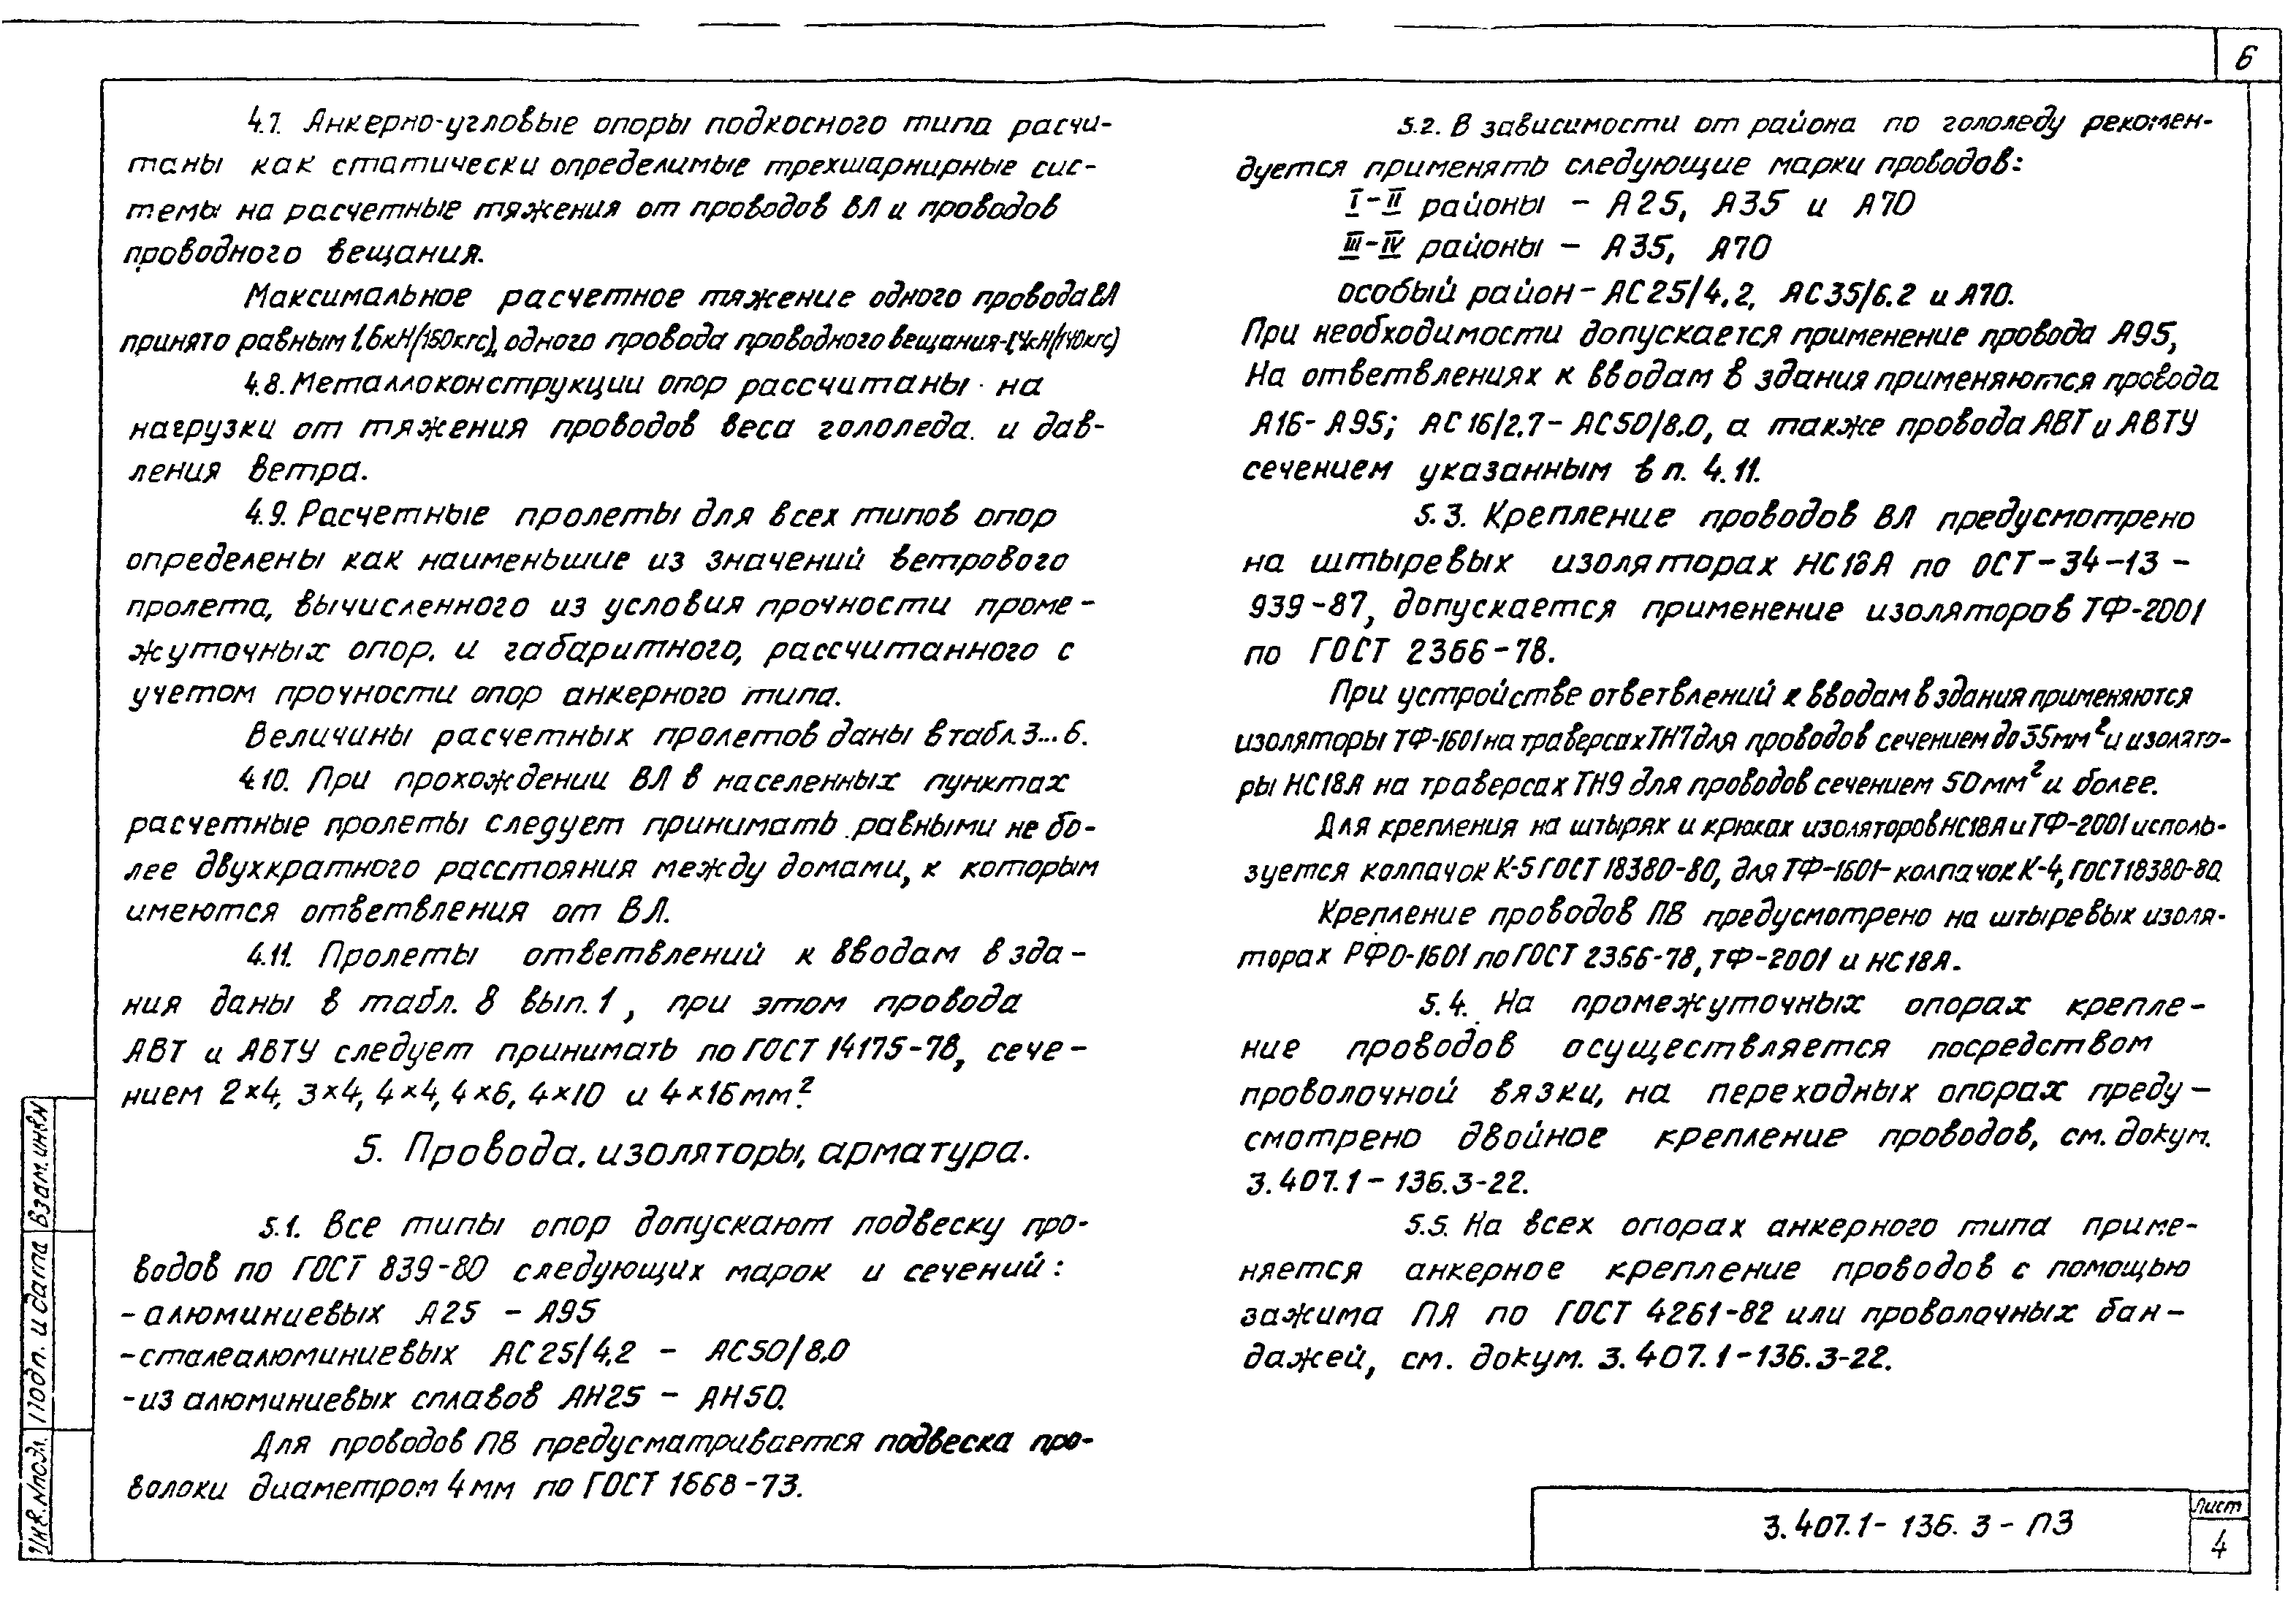 6
4.7. Анкерно-угловые опоры подкосного типа расчи-
таны как статически определимые трехшарнирные сис-
темы на расчетные тяжения от проводов ВЛ и проводов
проводного вещания.
Максимальное расчетное тяжение одного провода ВЛ
принято равным 1,6кН/150кгс), одного провода проводного вещания-1,4кН(140кгс)
4.8. Металлоконструкции опор рассчитаны на
нагрузки от тяжения проводов веса гололеда. и дав-
ления ветра.
4.9. Расчетные пролеты для всех типов опор
определены как наименьшие из значений ветрового
пролета, вычисленного из условия прочности проме-
жуточных опор. и габаритного, рассчитанного с
учетом прочности опор анкерного типа.
Величины расчетных пролетов даны в табл.3...6.
4.10. При прохождении ВЛ в населенных пунктах
расчетные пролеты следует принимать равными не бо-
лее двухкратного расстояния между домами, к которым
имеются ответвления от ВЛ.
4.11. Пролеты ответвлений к вводам в зда-
ния даны в табл. 8 вып. 1, при этом провода
АВТ и АВТУ следует принимать по ГОСТ 14175-78, сече-
нием 2×4, 3×4, 4×4, 4×6, 4×10 и 4×16 мм².
5. Провода, изоляторы, арматура.
5.1. Все типы опор допускают подвеску про-
водов по ГОСТ 839-80 следующих марок и сечений:
- алюминиевых А25 - А95
- сталеалюминиевых АС25/4,2 - АС50/8,0
- из алюминиевых сплавов АН25 - АН50.
Для проводов ПВ предусматривается подвеска про-
волоки диаметром 4 мм по ГОСТ 1668-73.
5.2. В зависимости от района по гололеду рекомен-
дуется применять следующие марки проводов:
I-II районы - А25, А35 и А70
III-IV районы - А35, А70
особый район - АС25/4.2, АС35/6.2 и А70.
При необходимости допускается применение провода А95,
На ответвлениях к вводам в здания применяются провода
А16-А95; АС16/2.7-АС50/8.0, а также провода АВТ и АВТУ
сечением указанным в п. 4.11.
5.3. Крепление проводов ВЛ предусмотрено
на штыревых изоляторах НС18А по ОСТ-34-13-
939-87, допускается применение изоляторов ТФ-2001
по ГОСТ 2366-78.
При устройстве ответвлений к вводам в здания применяются
изоляторы ТФ-1601 на траверсах ТН7 для проводов сечением до 35мм² и изолято-
ры НС18А на траверсах ТН9 для проводов сечением 50мм² и более.
Для крепления на штырях и крюках изоляторов НС18А и ТФ-2001 исполь-
зуется колпачок К-5 ГОСТ 18380-80, для ТФ-1601-колпачок К-4, ГОСТ 18380-80.
Крепление проводов ПВ предусмотрено на штыревых изоля-
торах РФО-1601 по ГОСТ 2366-78, ТФ-2001 и НС18А.
5.4. На промежуточных опорах крепле-
ние проводов осуществляется посредством
проволочной вязки, на переходных опорах преду-
смотрено двойное крепление проводов, см. докум.
3.407.1-136.3-22.
5.5. На всех опорах анкерного типа приме-
няется анкерное крепление проводов с помощью
зажима ПА по ГОСТ 4261-82 или проволочных бан-
дажей, см. докум. 3.407.1-136.3-22.
Взам. инв. N
Подп. и дата
Инв. N подл.
3.407.1-136.3-ПЗ
Лист
4